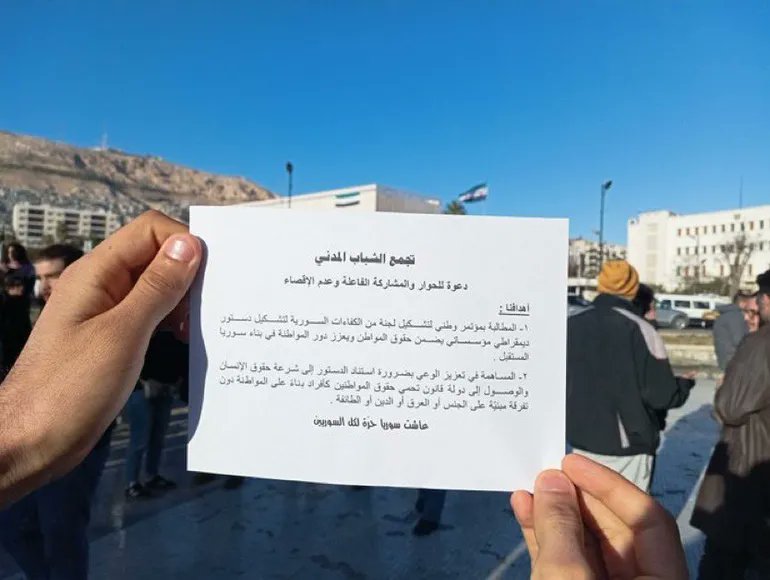 تجمع الشباب المدني
دعوة للحوار والمشاركة الفاعلة وعدم الإقصاء
أهدافنا :
١- المطالبة بمؤتمر وطني لتشكيل لجنة من الكفاءات السورية لتشكيل دستور
ديمقراطي مؤسساتي يضمن حقوق المواطن ويعزز دور المواطنة في بناء سوريا
المستقبل .
٢- المساهمة في تعزيز الوعي بضرورة استناد الدستور إلى شرعة حقوق الإنسان
والوصول إلى دولة قانون تحمي حقوق المواطنين كأفراد بناءً على المواطنة دون
تفرقة مبنيّة على الجنس أو العرق أو الدين أو الطائفة .
عاشت سوريا حرّة لكل السوريين